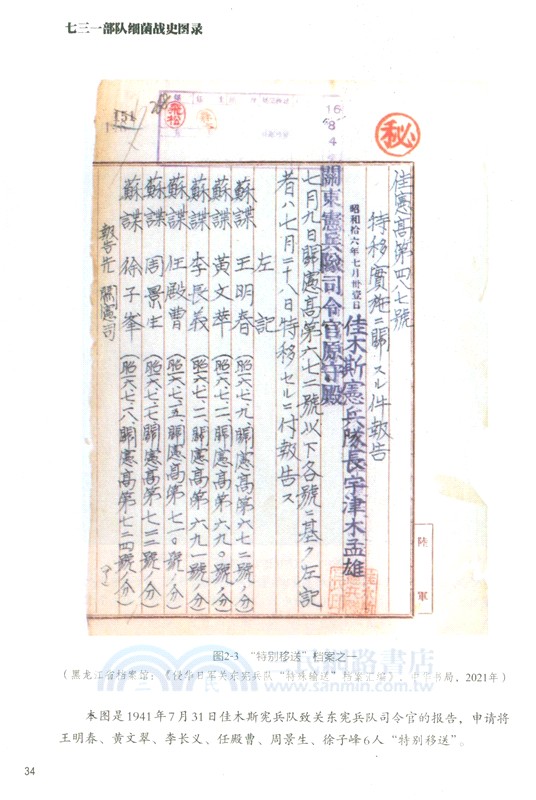 七三一部队细菌战史图录
151
16
8
4
秘
佳憲高第四八七號
特移實施ニ關スル件報告
昭和拾六年七月卅壹日
佳木斯憲兵隊長宇津木孟雄
關東憲兵隊司令官原守殿
七月九日關憲高第六七二號以下各號ニ基ク左記
者ハ七月二十八日特移セルニ付報告ス
左記
蘇諜 王明春（昭一六、七、九、關憲高第六七二號ノ分）
蘇諜 黃文萃（昭一六、七、一二、關憲高第六九〇號ノ分）
蘇諜 李長義（昭一六、七、一二、關憲高第六九一號ノ分）
蘇諜 任殿曹（昭一六、七、一五、關憲高第七一〇號ノ分）
蘇諜 周景生（昭一六、七、一七、關憲高第七二二號ノ分）
蘇諜 徐子峯（昭一六、七、一八、關憲高第七二四號ノ分）
報告先 關憲司
陸軍
图2-3 “特别移送”档案之一
（黑龙江省档案馆：《侵华日军关东宪兵队“特殊输送”档案汇编》，中华书局，2021年）
本图是1941年7月31日佳木斯宪兵队致关东宪兵队司令官的报告，申请将
王明春、黄文翠、李长义、任殿曹、周景生、徐子峰6人“特别移送”。
34
三民網路書店
www.sanmin.com.tw